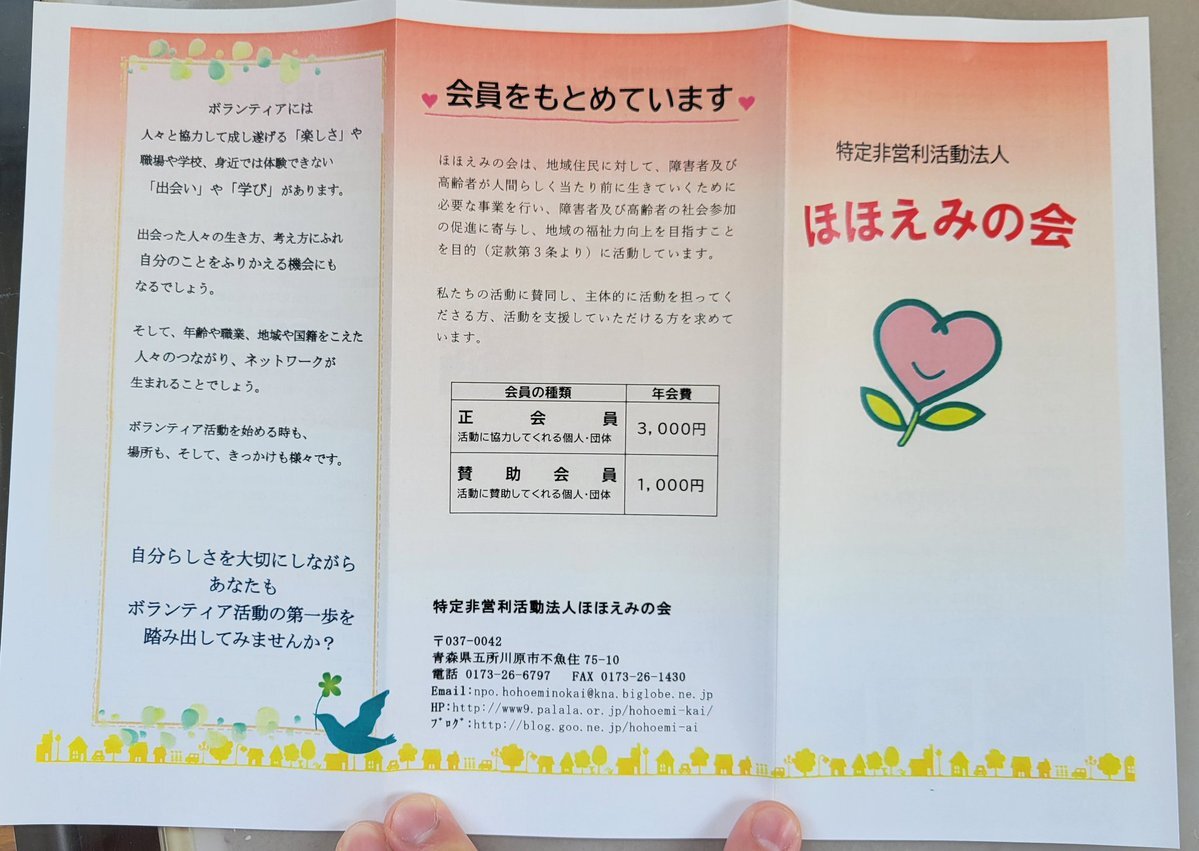 ボランティアには
人々と協力して成し遂げる「楽しさ」や
職場や学校、身近では体験できない
「出会い」や「学び」があります。
出会った人々の生き方、考え方にふれ
自分のことをふりかえる機会にも
なるでしょう。
そして、年齢や職業、地域や国籍をこえた
人々のつながり、ネットワークが
生まれることでしょう。
ボランティア活動を始める時も、
場所も、そして、きっかけも様々です。
自分らしさを大切にしながら
あなたも
ボランティア活動の第一歩を
踏み出してみませんか？
会員をもとめています
ほほえみの会は、地域住民に対して、障害者及び
高齢者が人間らしく当たり前に生きていくために
必要な事業を行い、障害者及び高齢者の社会参加
の促進に寄与し、地域の福祉力向上を目指すこと
を目的（定款第３条より）に活動しています。
私たちの活動に賛同し、主体的に活動を担ってく
ださる方、活動を支援していただける方を求めて
います。
会員の種類 年会費
正会員
活動に協力してくれる個人・団体
3,000円
賛助会員
活動に賛助してくれる個人・団体
1,000円
特定非営利活動法人ほほえみの会
〒037-0042
青森県五所川原市不魚住 75-10
電話 0173-26-6797 FAX 0173-26-1430
Email:npo.hohoeminokai@kna.biglobe.ne.jp
HP:http://www9.palala.or.jp/hohoemi-kai/
ﾌﾞﾛｸﾞ:http://blog.goo.ne.jp/hohoemi-ai
特定非営利活動法人
ほほえみの会